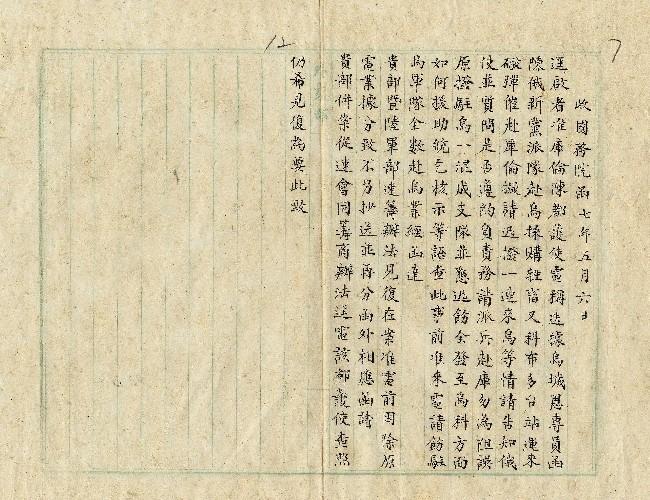 收國務院函七年五月六日
逕啟者准庫倫陳都護使電稱迭據烏城恩專員函
陳俄新黨派隊赴烏採購牲畜又科布多台站運來
砲彈能赴庫倫誠請迅撥一連來烏等情請告知俄
使並質問是否遵約負責務請派兵赴庫勿為阻誤
原撥駐烏一混成支隊並懇迅飭全發至烏科方面
如何援助統乞核示等語查此事前准來電請飭駐
烏軍隊全數赴烏業經函達
貴部暨陸軍部速籌辦法見復在案准電前因除原
電業據分致不另抄送並再分函外相應函請
貴部併案從速會同籌商辦法逕電該都護使查照
仍希見復為要此致
12
7